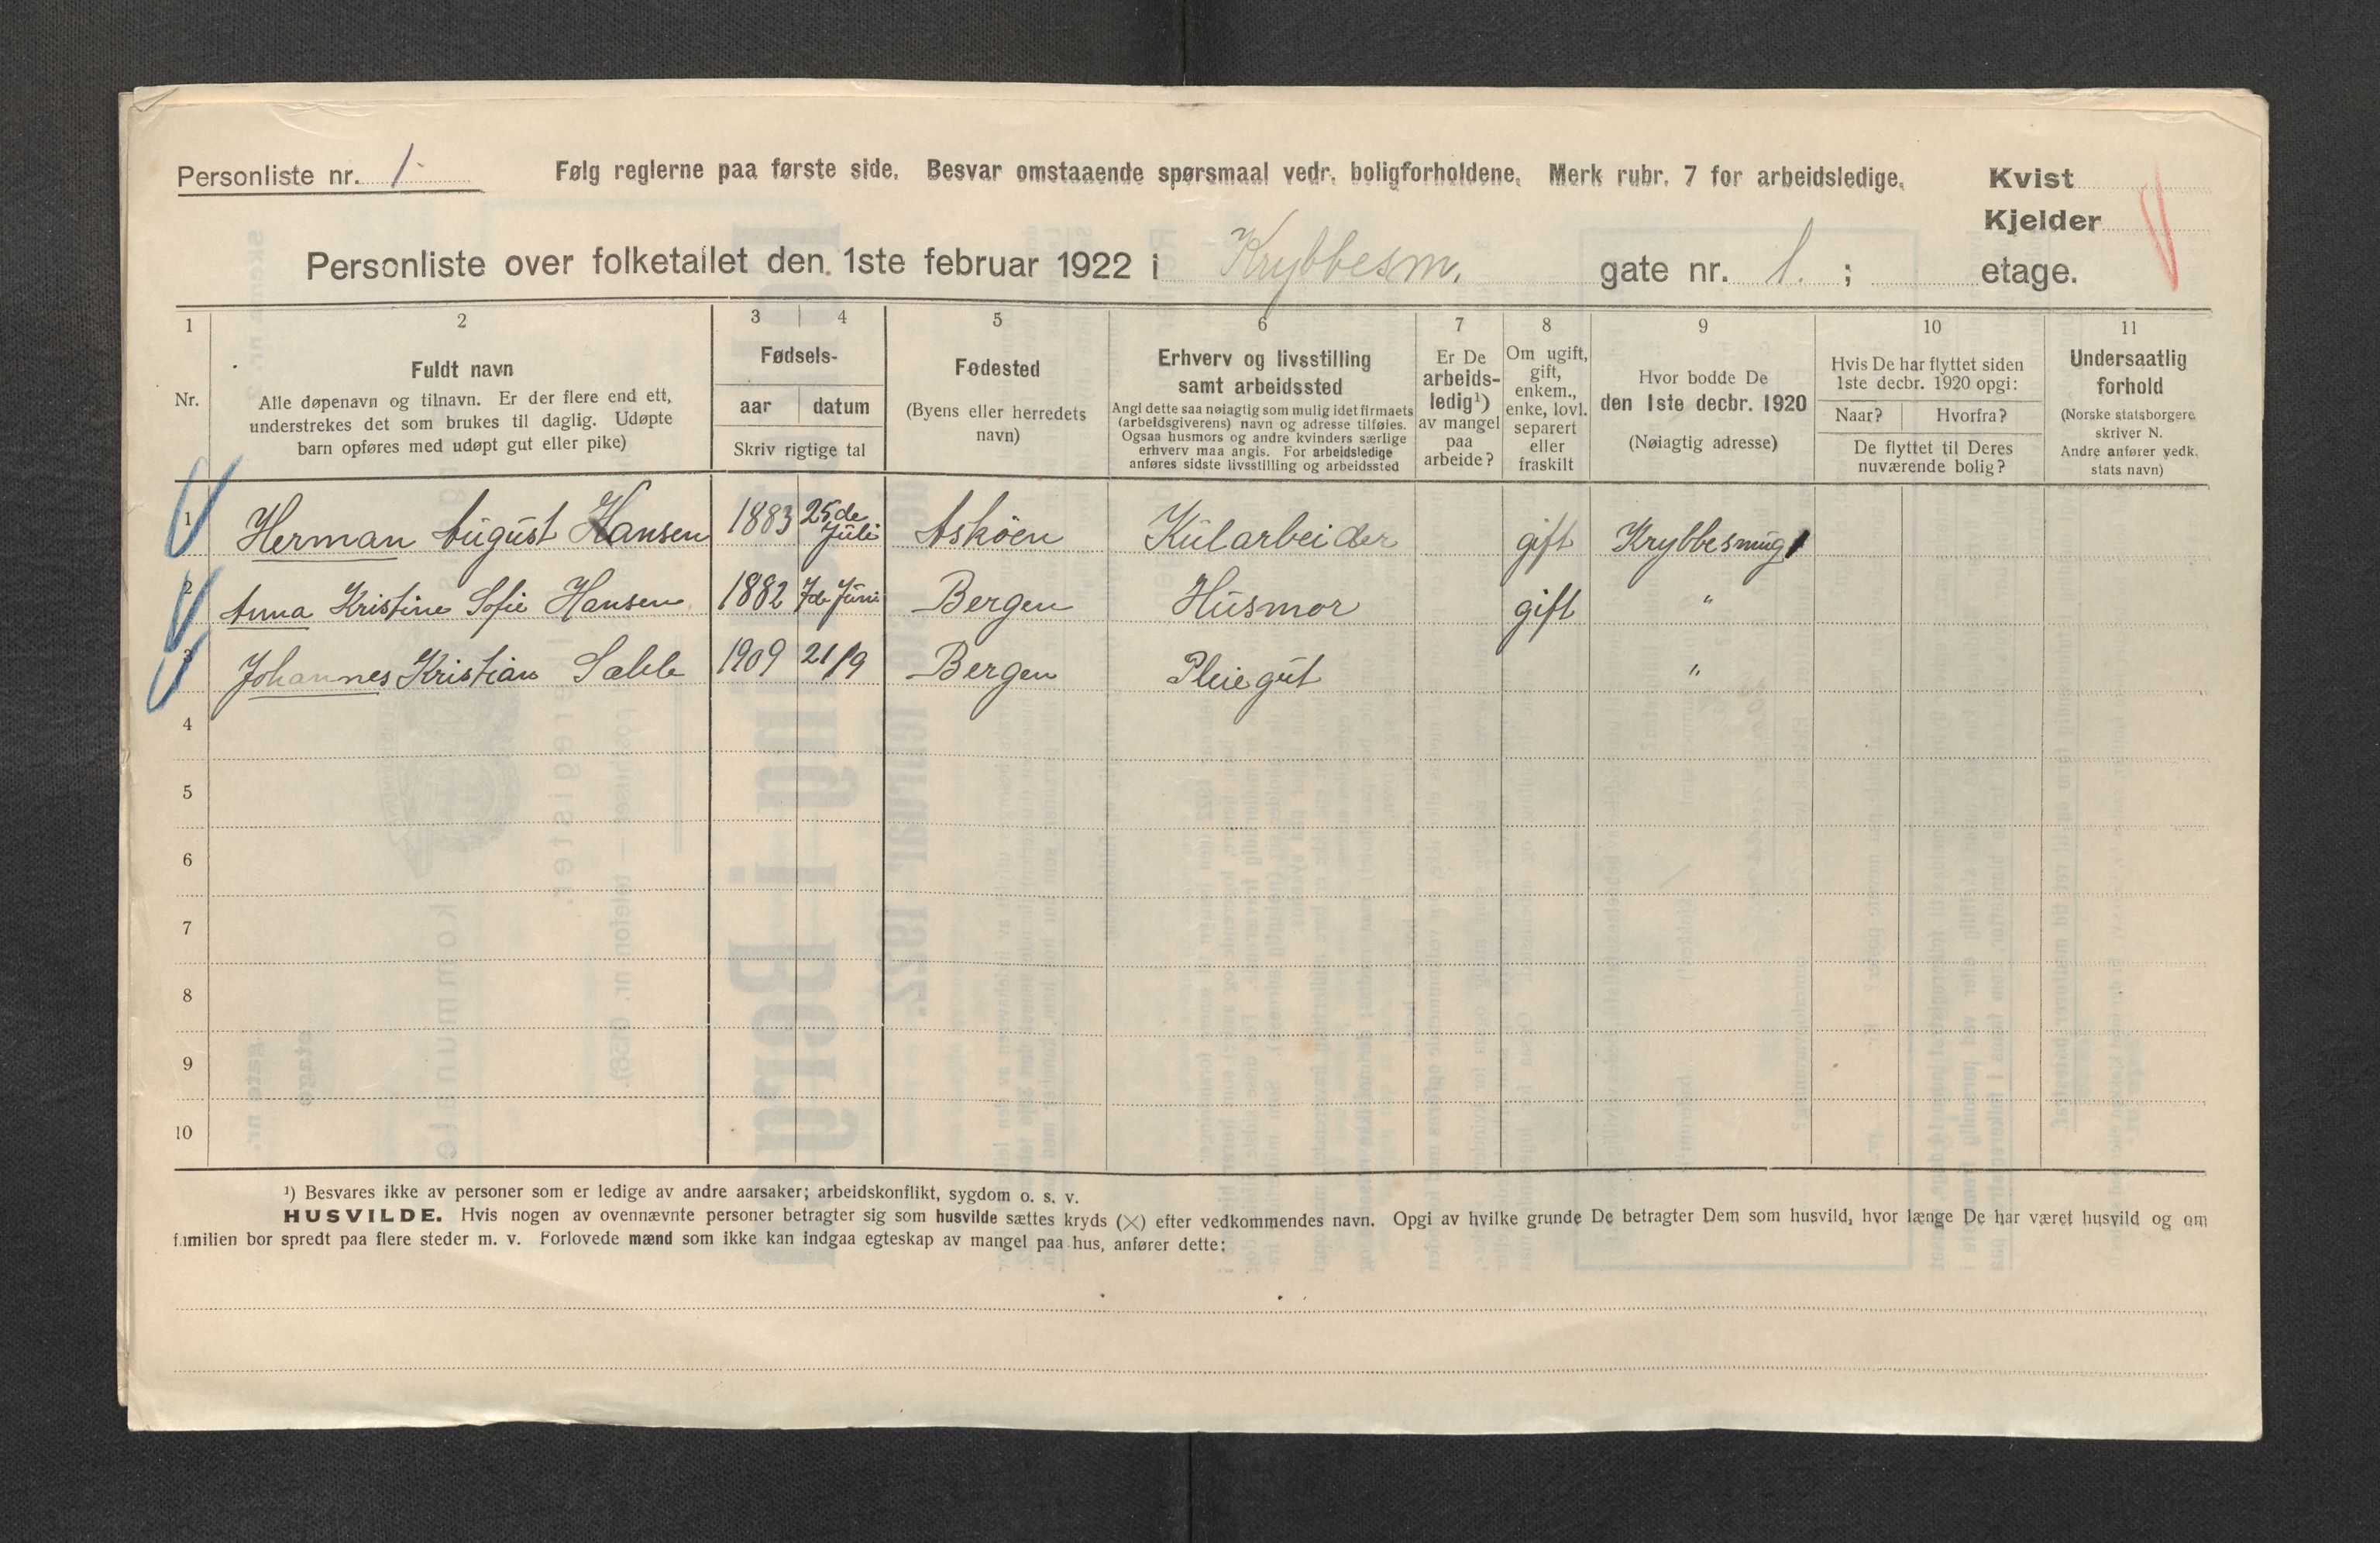 Personliste nr. 1. Følg reglerne paa første side. Besvar omstaaende spørsmaal vedr. boligforholdene. Merk rubr. 7 for arbeidsledige. Kvist
Kjelder
Personliste over folketallet den 1ste februar 1922 i Krybbesm. gate nr. 1. ; etage.
1 2 3 4 5 6 7 8 9 10 11
Nr.
Fuldt navn
Alle døpenavn og tilnavn. Er der flere end ett,
understrekes det som brukes til daglig. Udøpte
barn opføres med udøpt gut eller pike)
Fødsels-
aar datum
Skriv rigtige tal
Fødested
(Byens eller herredets
navn)
Erhverv og livsstilling
samt arbeidssted
Angi dette saa nøiagtig som mulig idet firmaets
(arbeidsgiverens) navn og adresse tilføies.
Ogsaa husmors og andre kvinders særlige
erhverv maa angis. For arbeidsledige
anføres sidste livsstilling og arbeidssted
Er De
arbeids-
ledig¹)
av mangel
paa
arbeide?
Om ugift,
gift,
enkem.,
enke, lovl.
separert
eller
fraskilt
Hvor bodde De
den 1ste decbr. 1920
(Nøiagtig adresse)
Hvis De har flyttet siden
1ste decbr. 1920 opgi:
Naar? Hvorfra?
De flyttet til Deres
nuværende bolig?
Undersaatlig
forhold
(Norske statsborgere
skriver N.
Andre anfører vedk.
stats navn)
1 Herman August Hansen 1883 25de Juli Asköen Kularbeider gift Krybbesmug 1
2 Anna Kristine Sofie Hansen 1882 7de Juni Bergen Husmor gift "
3 Johannes Kristian 1909 21/9 Bergen Pleiegut "
4
5
6
7
8
9
10
¹) Besvares ikke av personer som er ledige av andre aarsaker; arbeidskonflikt, sygdom o. s. v.
HUSVILDE. Hvis nogen av ovennævnte personer betragter sig som husvilde sættes kryds (×) efter vedkommendes navn. Opgi av hvilke grunde De betragter Dem som husvild, hvor længe De har været husvild og om
familien bor spredt paa flere steder m. v. Forlovede mænd som ikke kan indgaa egteskap av mangel paa hus, anfører dette: